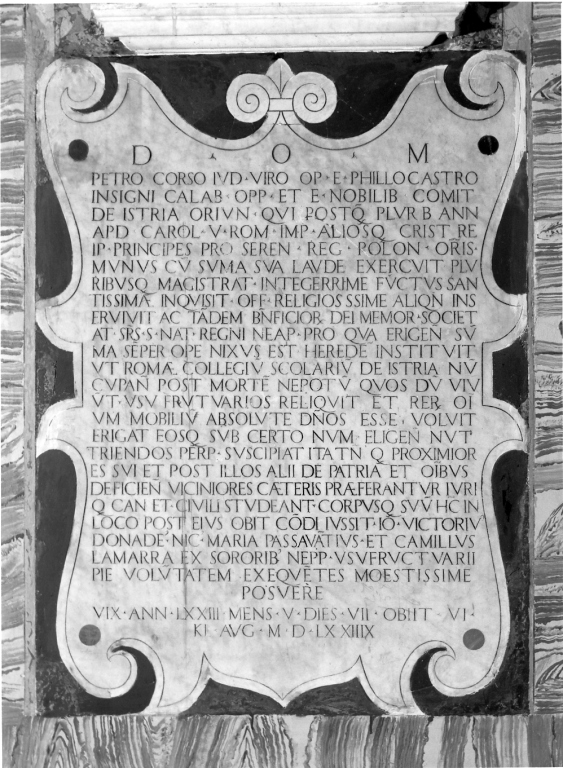 D · O · M
PETRO CORSO IVD · VIRO OP · E · PHILLOCASTRO
INSIGNI CALAB · OPP · ET E · NOBILIB COMIT
DE ISTRIA ORIVN · QVI POSTQ PLVR B ANN
APD CAROL · V · ROM · IMP · ALIOSQ CRIST RE
IP · PRINCIPES PRO SEREN · REG · POLON · ORIS ·
MVNVS CV SVMA SVA LAVDE EXERCVIT PLV
RIBVSQ MAGISTRAT · INTEGERRIME FVCTVS SAN
TISSIMÆ INQVISIT · OFF · RELIGIOS SSIME ALIQN INS
ERVIVIT AC TADEM BNFICIOR DEI MEMOR · SOCIET
AT · SRS · S · NAT · REGNI NEAP · PRO QVA ERIGEN SV
MA SEPER OPE NIXVS EST HEREDE INSTIT VIT
VT ROMÆ COLLEGIV SCOLARIV DE ISTRIA NV
CVPAN POST MORTE NEPOTV QVOS DV VIV
VT · VSV FRVTVARIOS RELIQVIT ET RER OI
VM MOBILIV ABSOLVTE DNOS ESSE · VOLVIT
ERIGAT EOSQ SVB CERTO NVM · ELIGEN NVT
TRIENDOS PERP · SVSCIPIAT ITA TN Q PROXIMIOR
ES SVI ET POST ILLOS ALII DE PATRIA ET OIBVS
DEFICIEN VICINIORES CÆTERIS PRÆFERANTVR IVRI
Q CAN ET CIVILI STVDEANT · CORPVSQ SVV HC IN
LOCO POST EIVS OBIT CODI IVSSIT · IO · VICTORIV
DONADE · NIC · MARIA PASSAVATIVS · ET CAMILLVS
LAMARRA EX SORORIB NEPP · VSVFRVCTVARII
PIE VOLVTATEM EXEQVETES MOESTISSIME
POSVERE
VIX · ANN · LXXIII · MENS · V · DIES · VII · OBIIT · VI ·
KL AVG · M D LX XIIIX